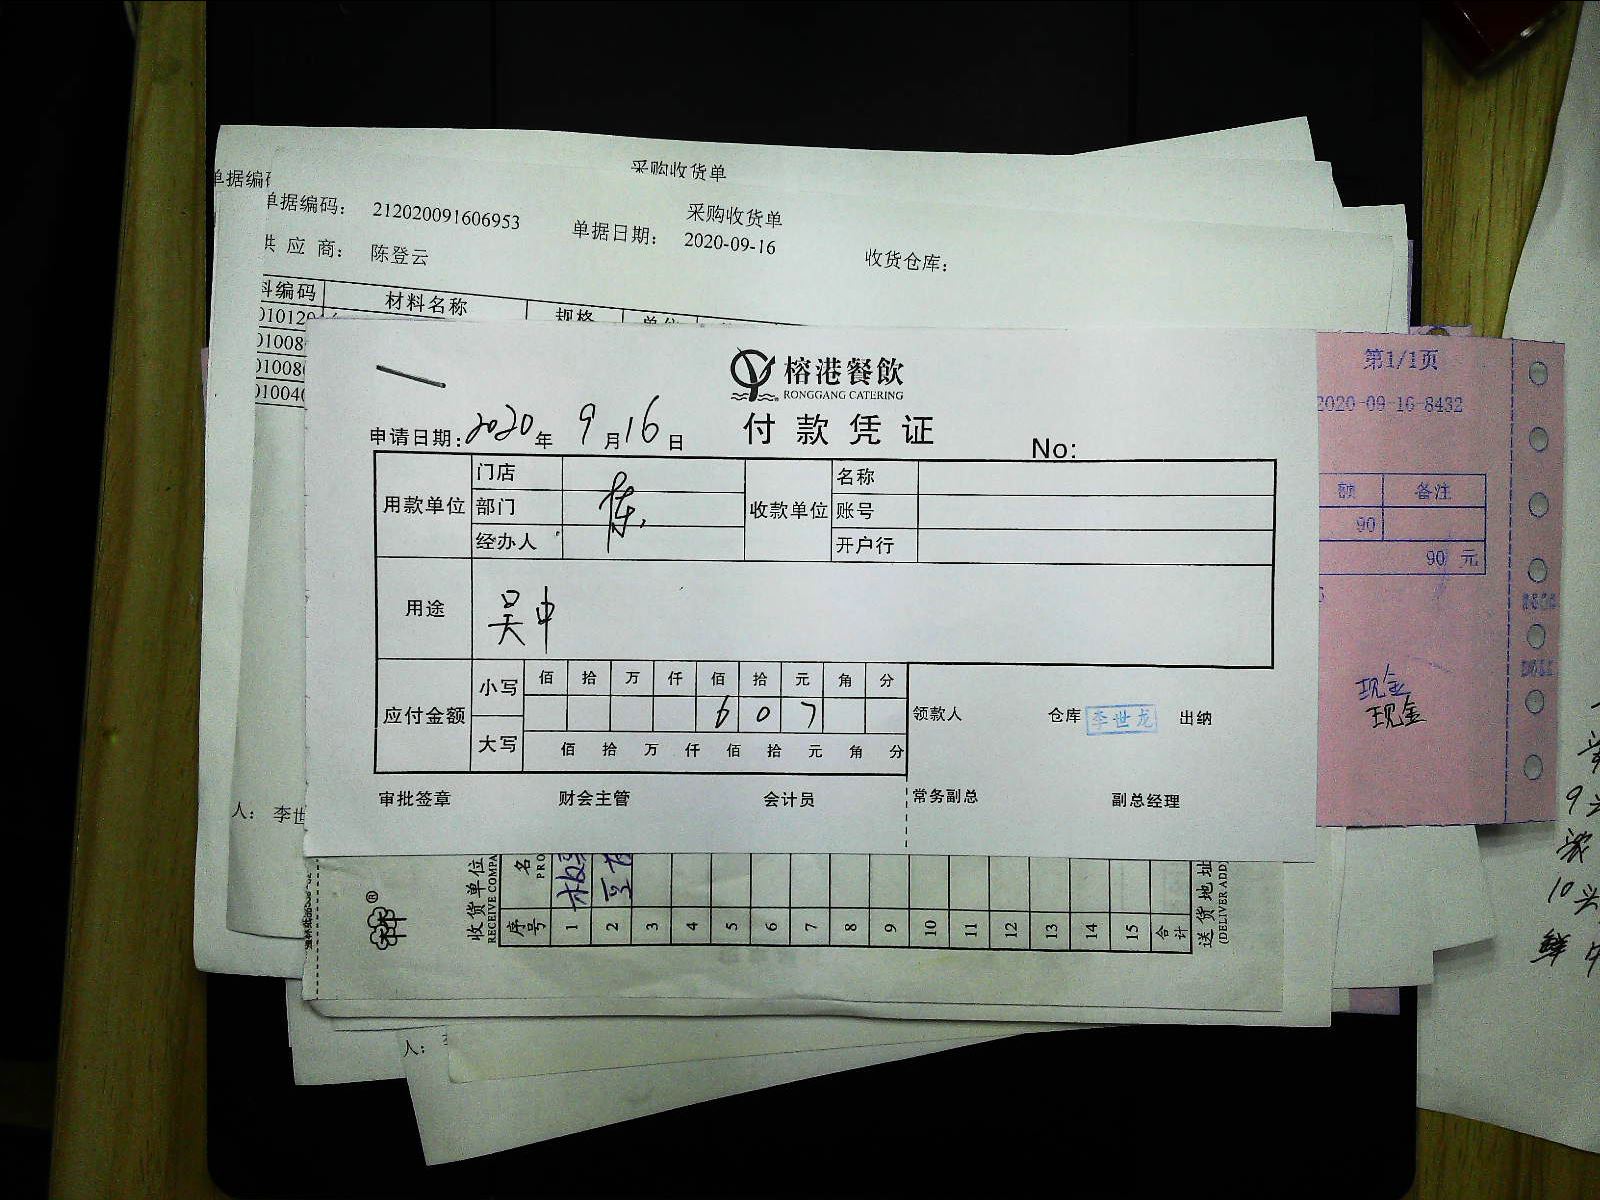 采购收货单
单据编
单据编码： 212020091606953
采购收货单
单据日期： 2020-09-16
收货仓库：
供应商： 陈登云
料编码 材料名称 规格 单位
010120
01008
01008
01004
榕港餐飲
RONGGANG CATERING
付款凭证
申请日期：2020年9月16日
No:
用款单位 门店 收款单位 名称
部门 陈 账号
经办人 开户行
用途 吴中
应付金额 小写 佰 拾 万 仟 佰 拾 元 角 分
6 0 7
大写 佰 拾 万 仟 佰 拾 元 角 分
领款人 仓库 李世龙 出纳
审批签章 财会主管 会计员 常务副总 副总经理
第1/1页
2020-09-16-8432
额 备注
90
90 元
现金
现金
人： 李世
收货单位
RECEIVE COMPA
名
PRO
序号 1 2 3 4 5 6 7 8 9 10 11 12 13 14 15 合计
送货地址
(DELIVER ADD
祥®
人：
9
10头
鲜